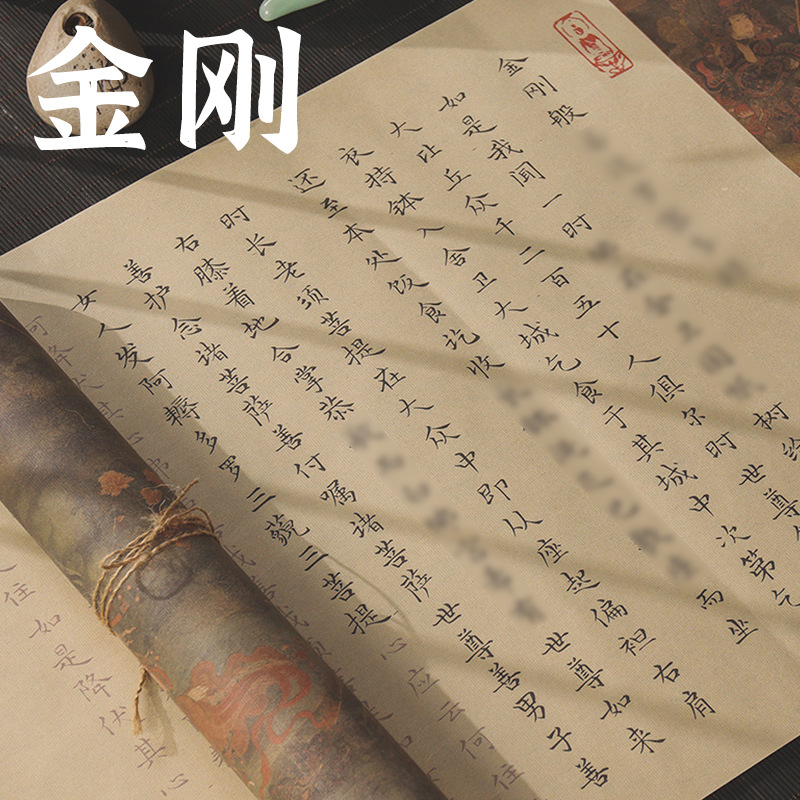 金刚
金刚般
如是我闻一时
树给
大比丘众千二百五十人俱尔时世尊
衣持钵入舍卫大城乞食于其城中次第乞
还至本处饭食讫收
而坐
时长老须菩提在大众中即从座起偏袒右肩
右膝着地合掌恭
世尊如来
善护念诸菩萨善付嘱诸菩萨世尊善男子善
女人发阿耨多罗三藐三菩提心应云何住
何降伏其心
住如是降伏其心